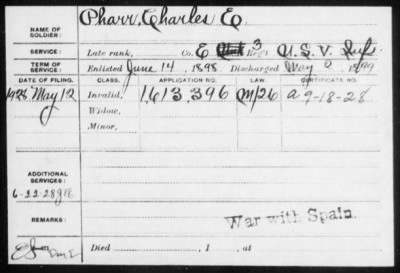 NAME OF SOLDIER: Pharr, Charles E.
SERVICE: Late rank, Co. E 3 Reg't U.S.V. Inf.
TERM OF SERVICE: Enlisted June 14, 1898 Discharged May 2, 1899
DATE OF FILING. CLASS. APPLICATION NO. LAW. CERTIFICATE NO.
1928 May 12 Invalid, 1,613,396 M/26 a 9-18-28
Widow,
Minor,
ADDITIONAL SERVICES:
6-22-28
REMARKS: War with Spain.
Died , 1 , at